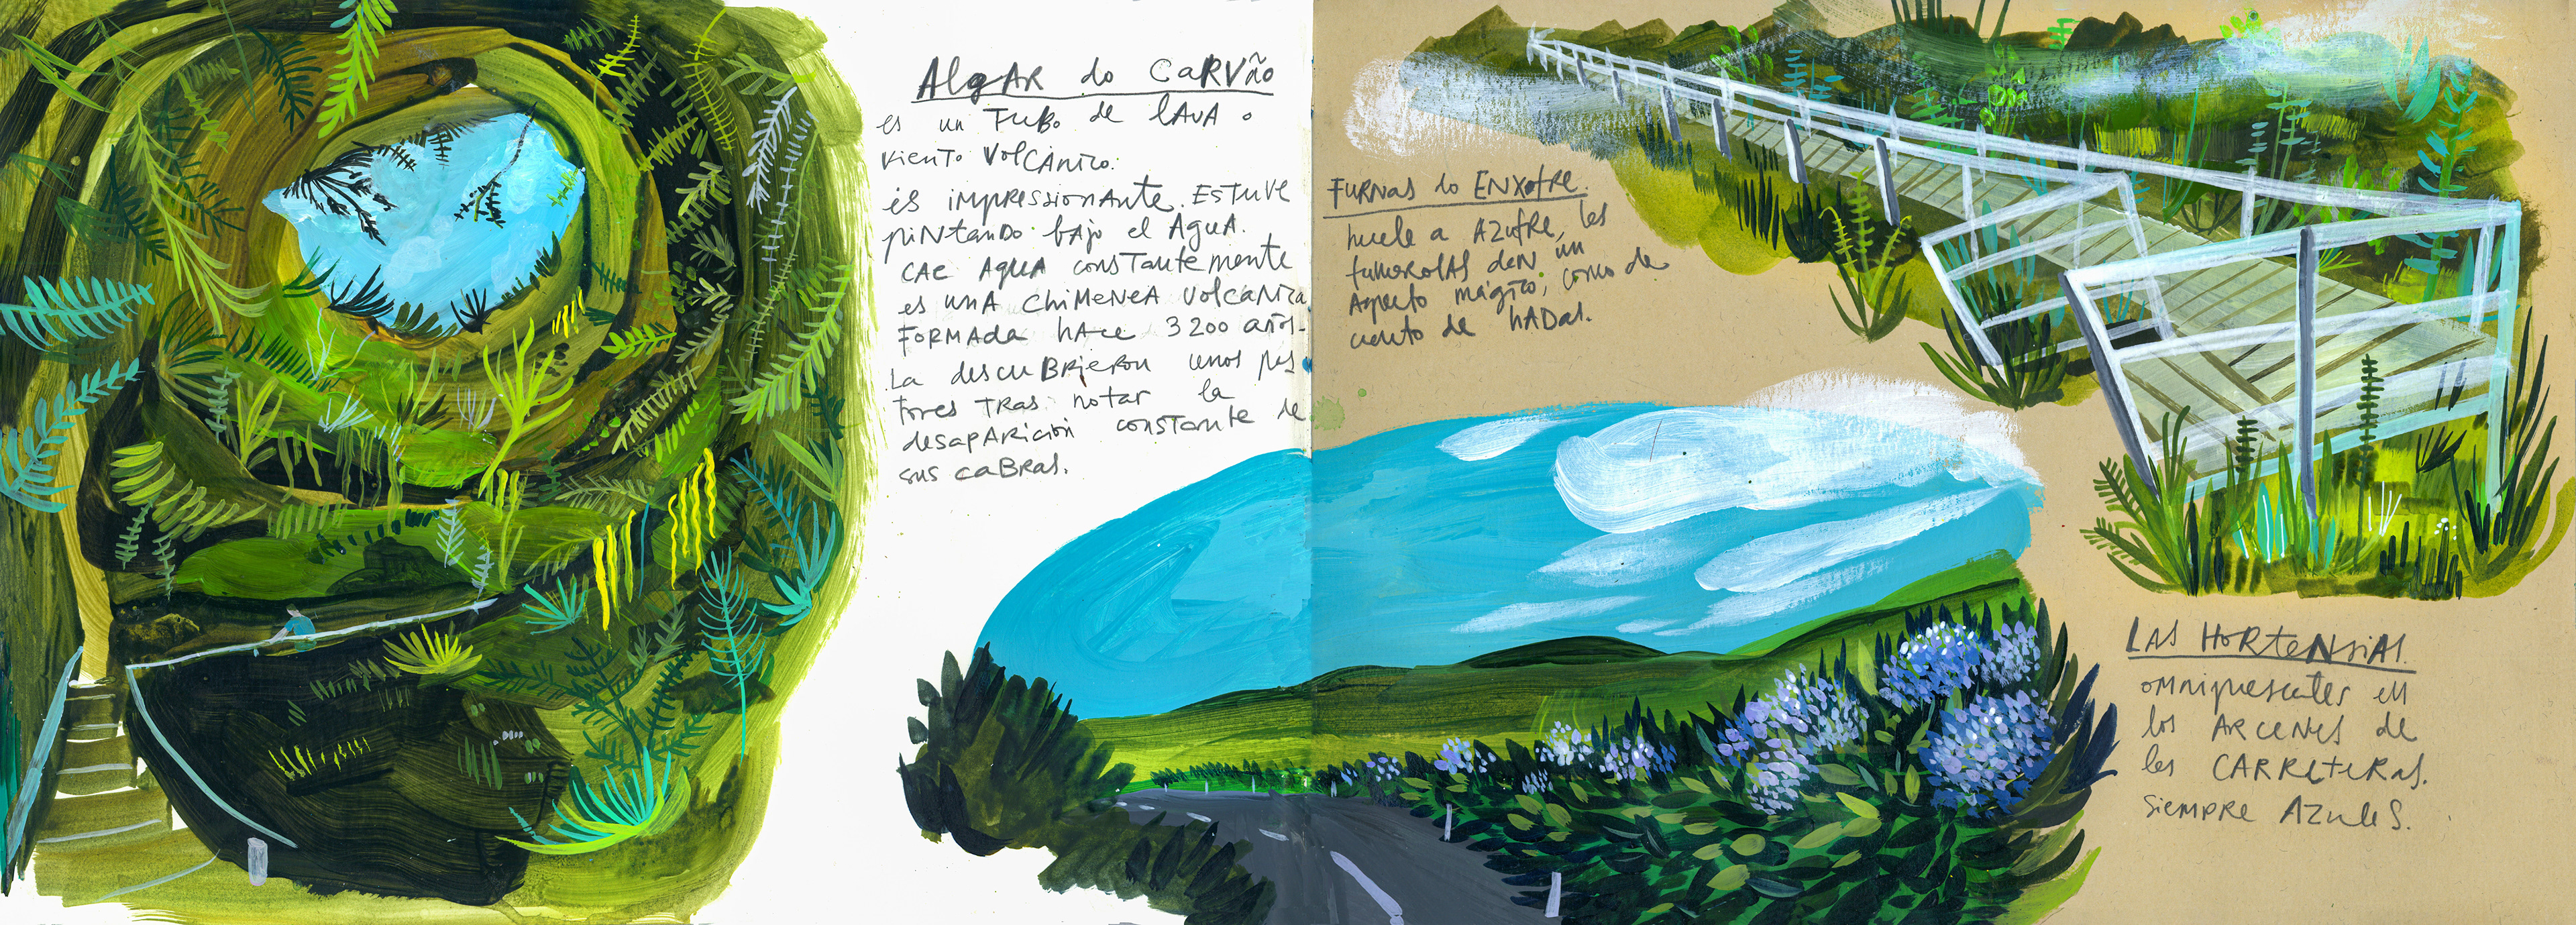 Algar do Carvão
es un Tubo de lava o
viento volcánico.
és impresionante. Estuve
pintando bajo el agua.
Cae agua constantemente
es una chimenea volcanica
formada hace 3200 años.
La descubrieron unos pas
tores tras notar la
desaparición constante de
sus cabras.
Furnas do Enxofre.
huele a azufre, las
fumarolas dan un
aspecto mágico, como de
cuento de hadas.
Las Hortensias.
omnipresentes en
los arcenes de
las carreteras.
siempre azules.